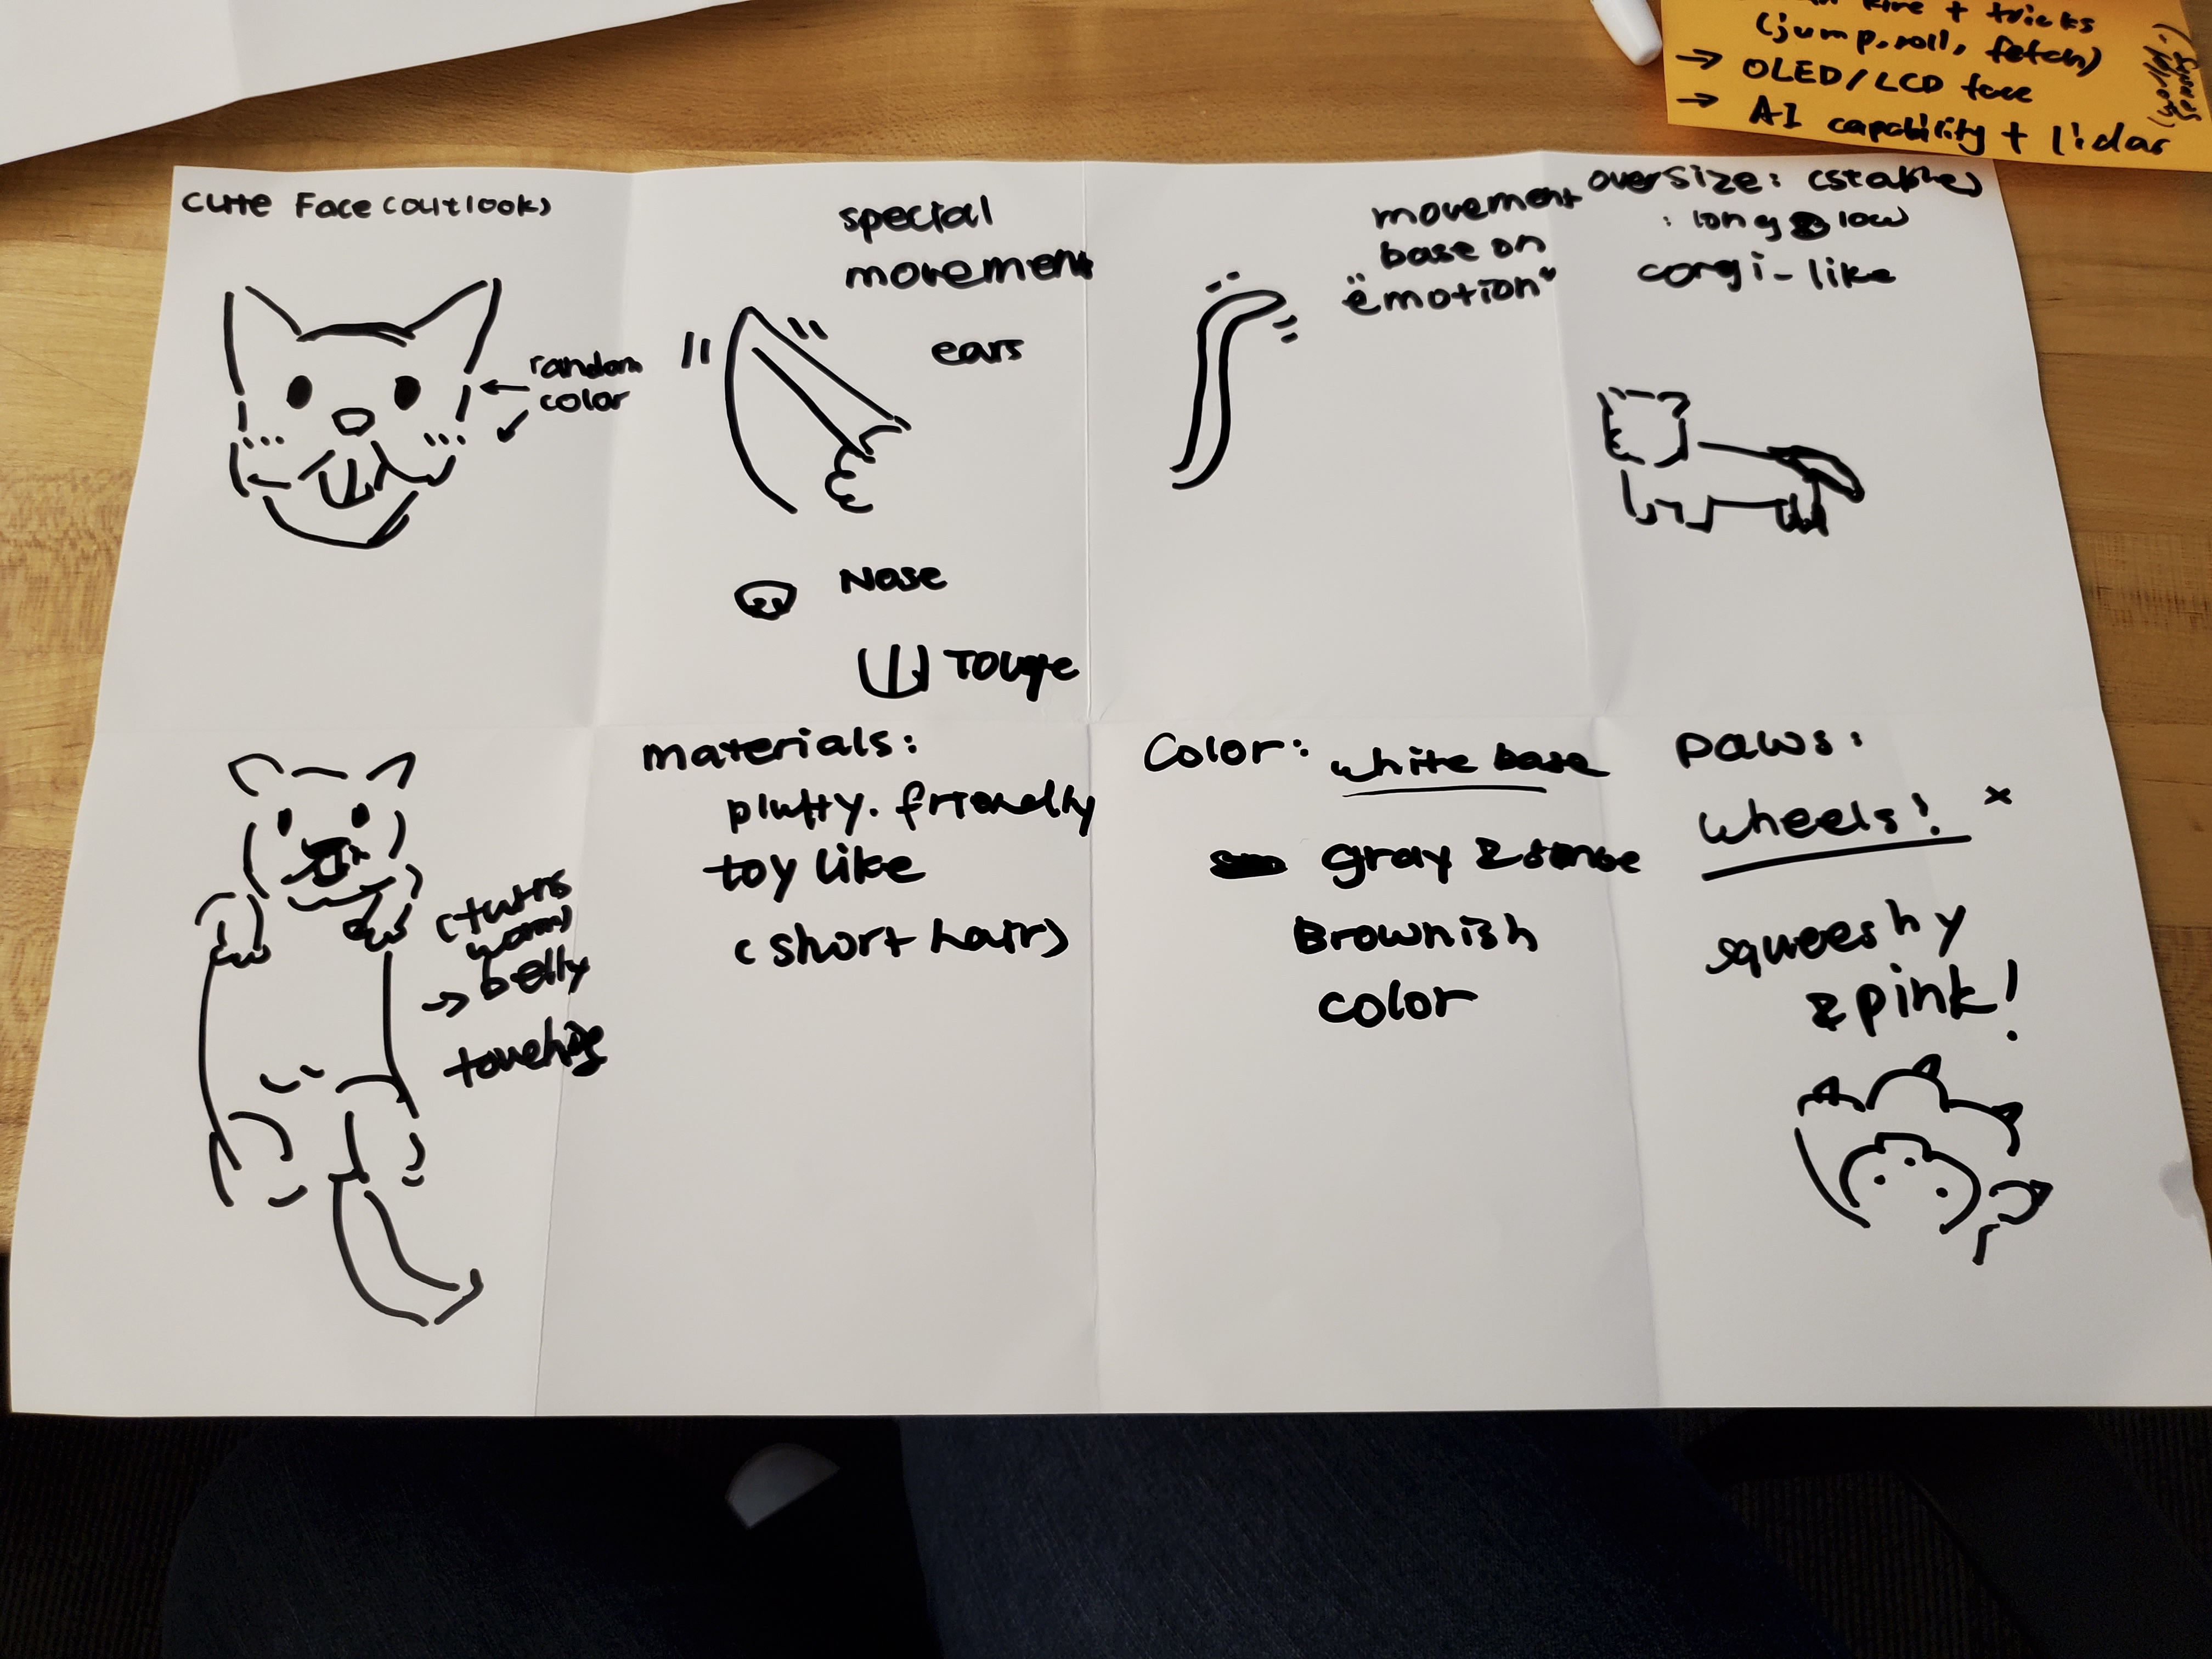 + tricks
(jump, roll, fetch)
→ OLED/LCD face
→ AI capability + lidar
cute Face (outlook)
random
color
special
movement
ears
Nose
Touge
movement
base on
"emotion"
oversize: (stable)
: long & low
corgi-like
(turns
warm)
→ belly
touching
materials:
pluffy. friendly
toy like
(short hair)
Color: white base
gray & some
Brownish
color
paws:
wheels! x
squeeshy
& pink!